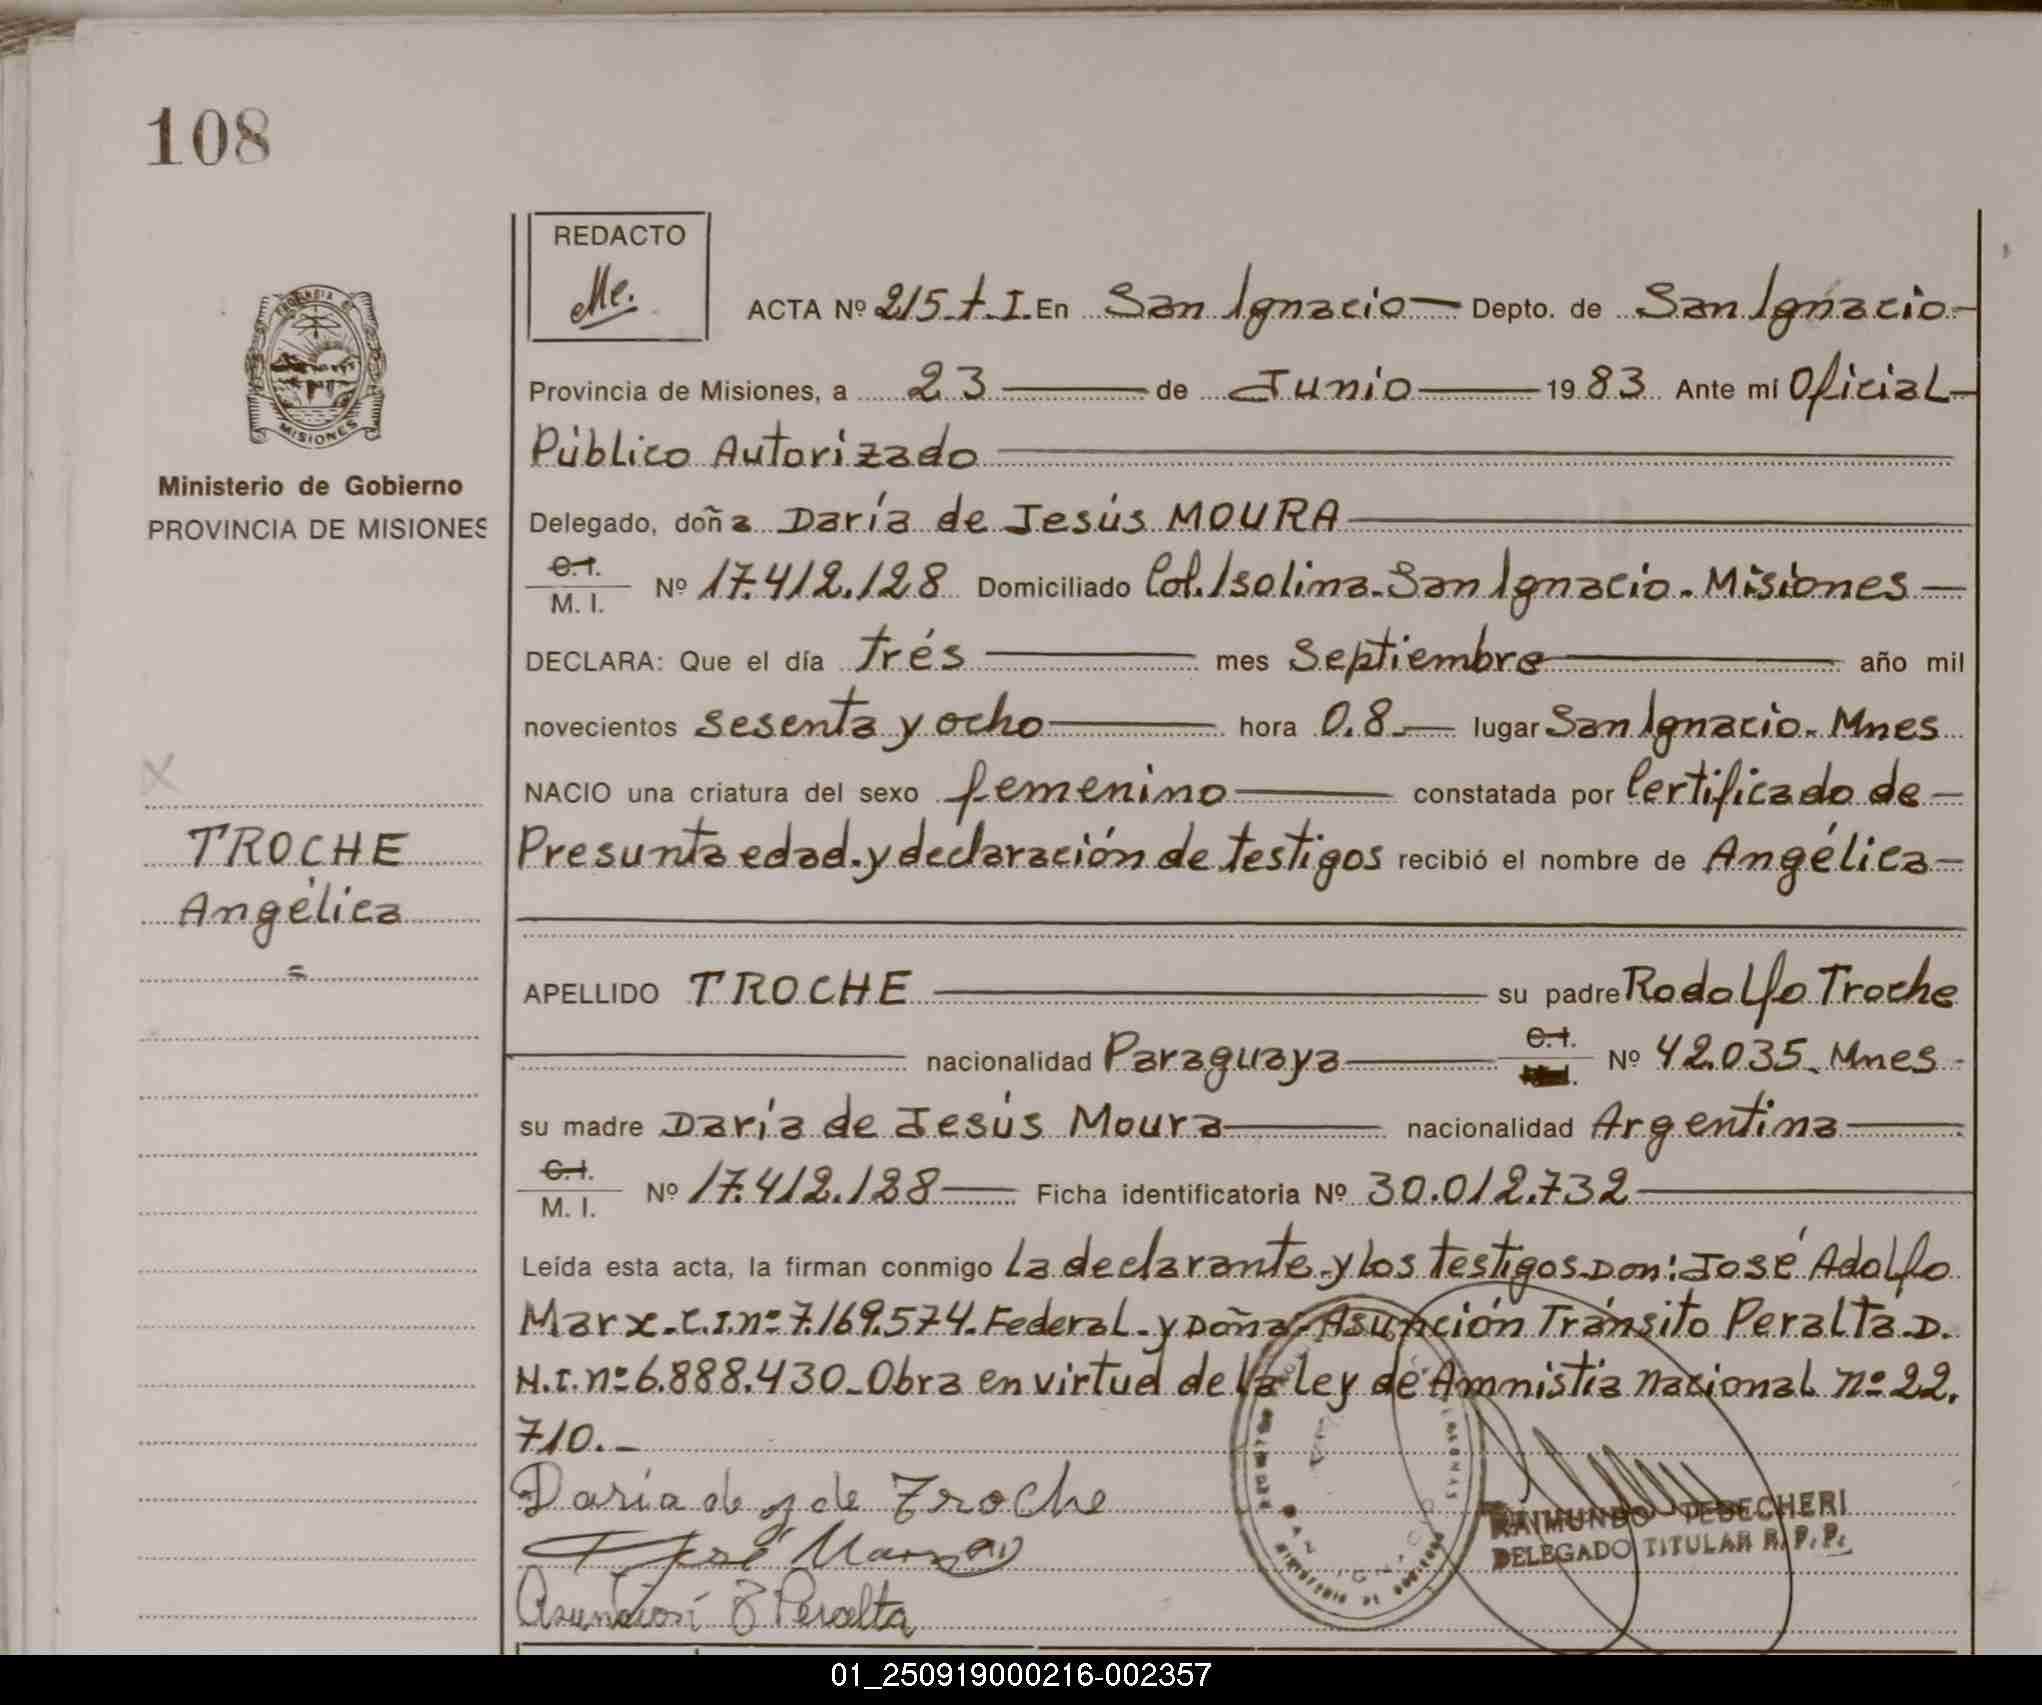 108
REDACTO
Me.
ACTA Nº 215.t.I. En San Ignacio Depto. de San Ignacio
Provincia de Misiones, a 23 de Junio 1983 Ante mí Oficial
Público Autorizado
Delegado, doña Daría de Jesús MOURA
C.I.
M. I. Nº 17.412.128 Domiciliado Col. Isolina. San Ignacio. Misiones
DECLARA: Que el día trés mes Septiembre año mil
novecientos sesenta y ocho hora 0.8 lugar San Ignacio. Mnes
NACIO una criatura del sexo femenino constatada por Certificado de
Presunta edad. y declaración de testigos recibió el nombre de Angélica
APELLIDO TROCHE su padre Rodolfo Troche
nacionalidad Paraguaya C.I. Nº 42.035. Mnes
su madre Daría de Jesús Moura nacionalidad Argentina
C.I.
M. I. Nº 17.412.128 Ficha identificatoria Nº 30.012.732
Leída esta acta, la firman conmigo la declarante. y los testigos. Don: José Adolfo
Marx. C.I. nº 7.169.574. Federal. y Doña: Asunción Tránsito Peralta. D.
N.I. nº 6.888.430. Obra en virtud de la ley de Amnistía nacional nº 22.
710.
Daría de J de Troche
José Marx
Asunción T Peralta
RAIMUNDO PEDECHERI
DELEGADO TITULAR R. P. P.
PROVINCIA DE
MISIONES
Ministerio de Gobierno
PROVINCIA DE MISIONES
X
TROCHE
Angélica
=
01_250919000216-002357